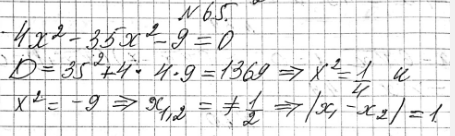 №65.
-4x² - 35x² - 9 = 0
D = 35² + 4 · 4 · 9 = 1369 ⇒ x² = 1/4 и
x² = -9 ⇒ x₁,₂ = ∓ 1/2 ⇒ |x₁ - x₂| = 1.